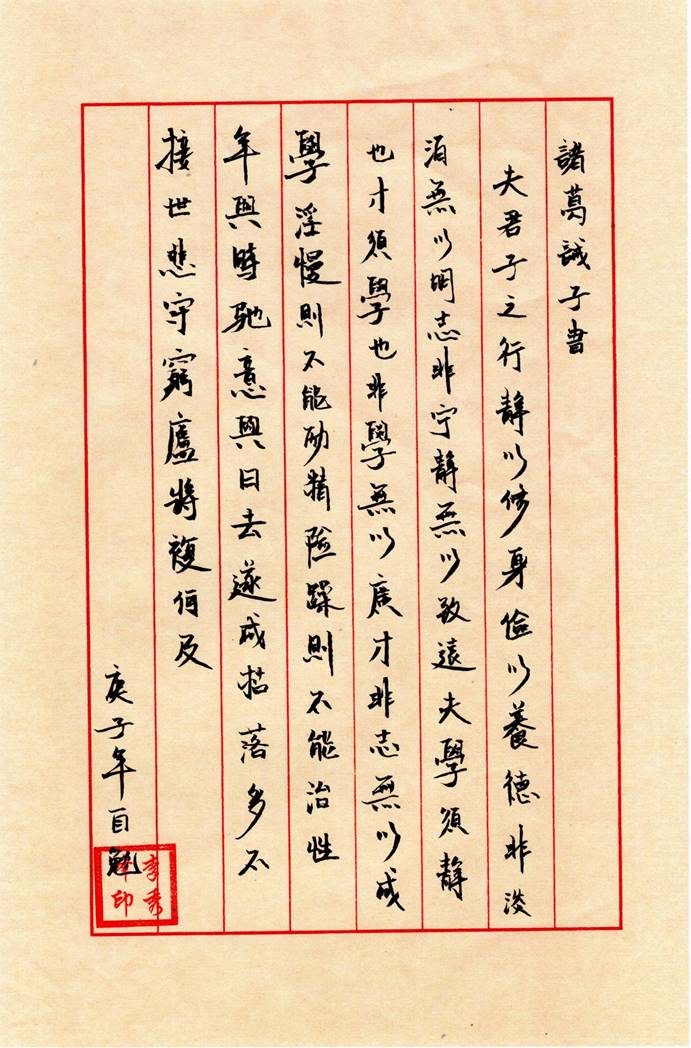 諸葛誡子書
夫君子之行靜以修身儉以養德非淡
泊無以明志非寧靜無以致遠夫學須靜
也才須學也非學無以廣才非志無以成
學淫慢則不能励精險躁則不能治性
年與時馳意與日去遂成枯落多不
接世悲守窮廬將複何及
庚子年自勉
李秀
印